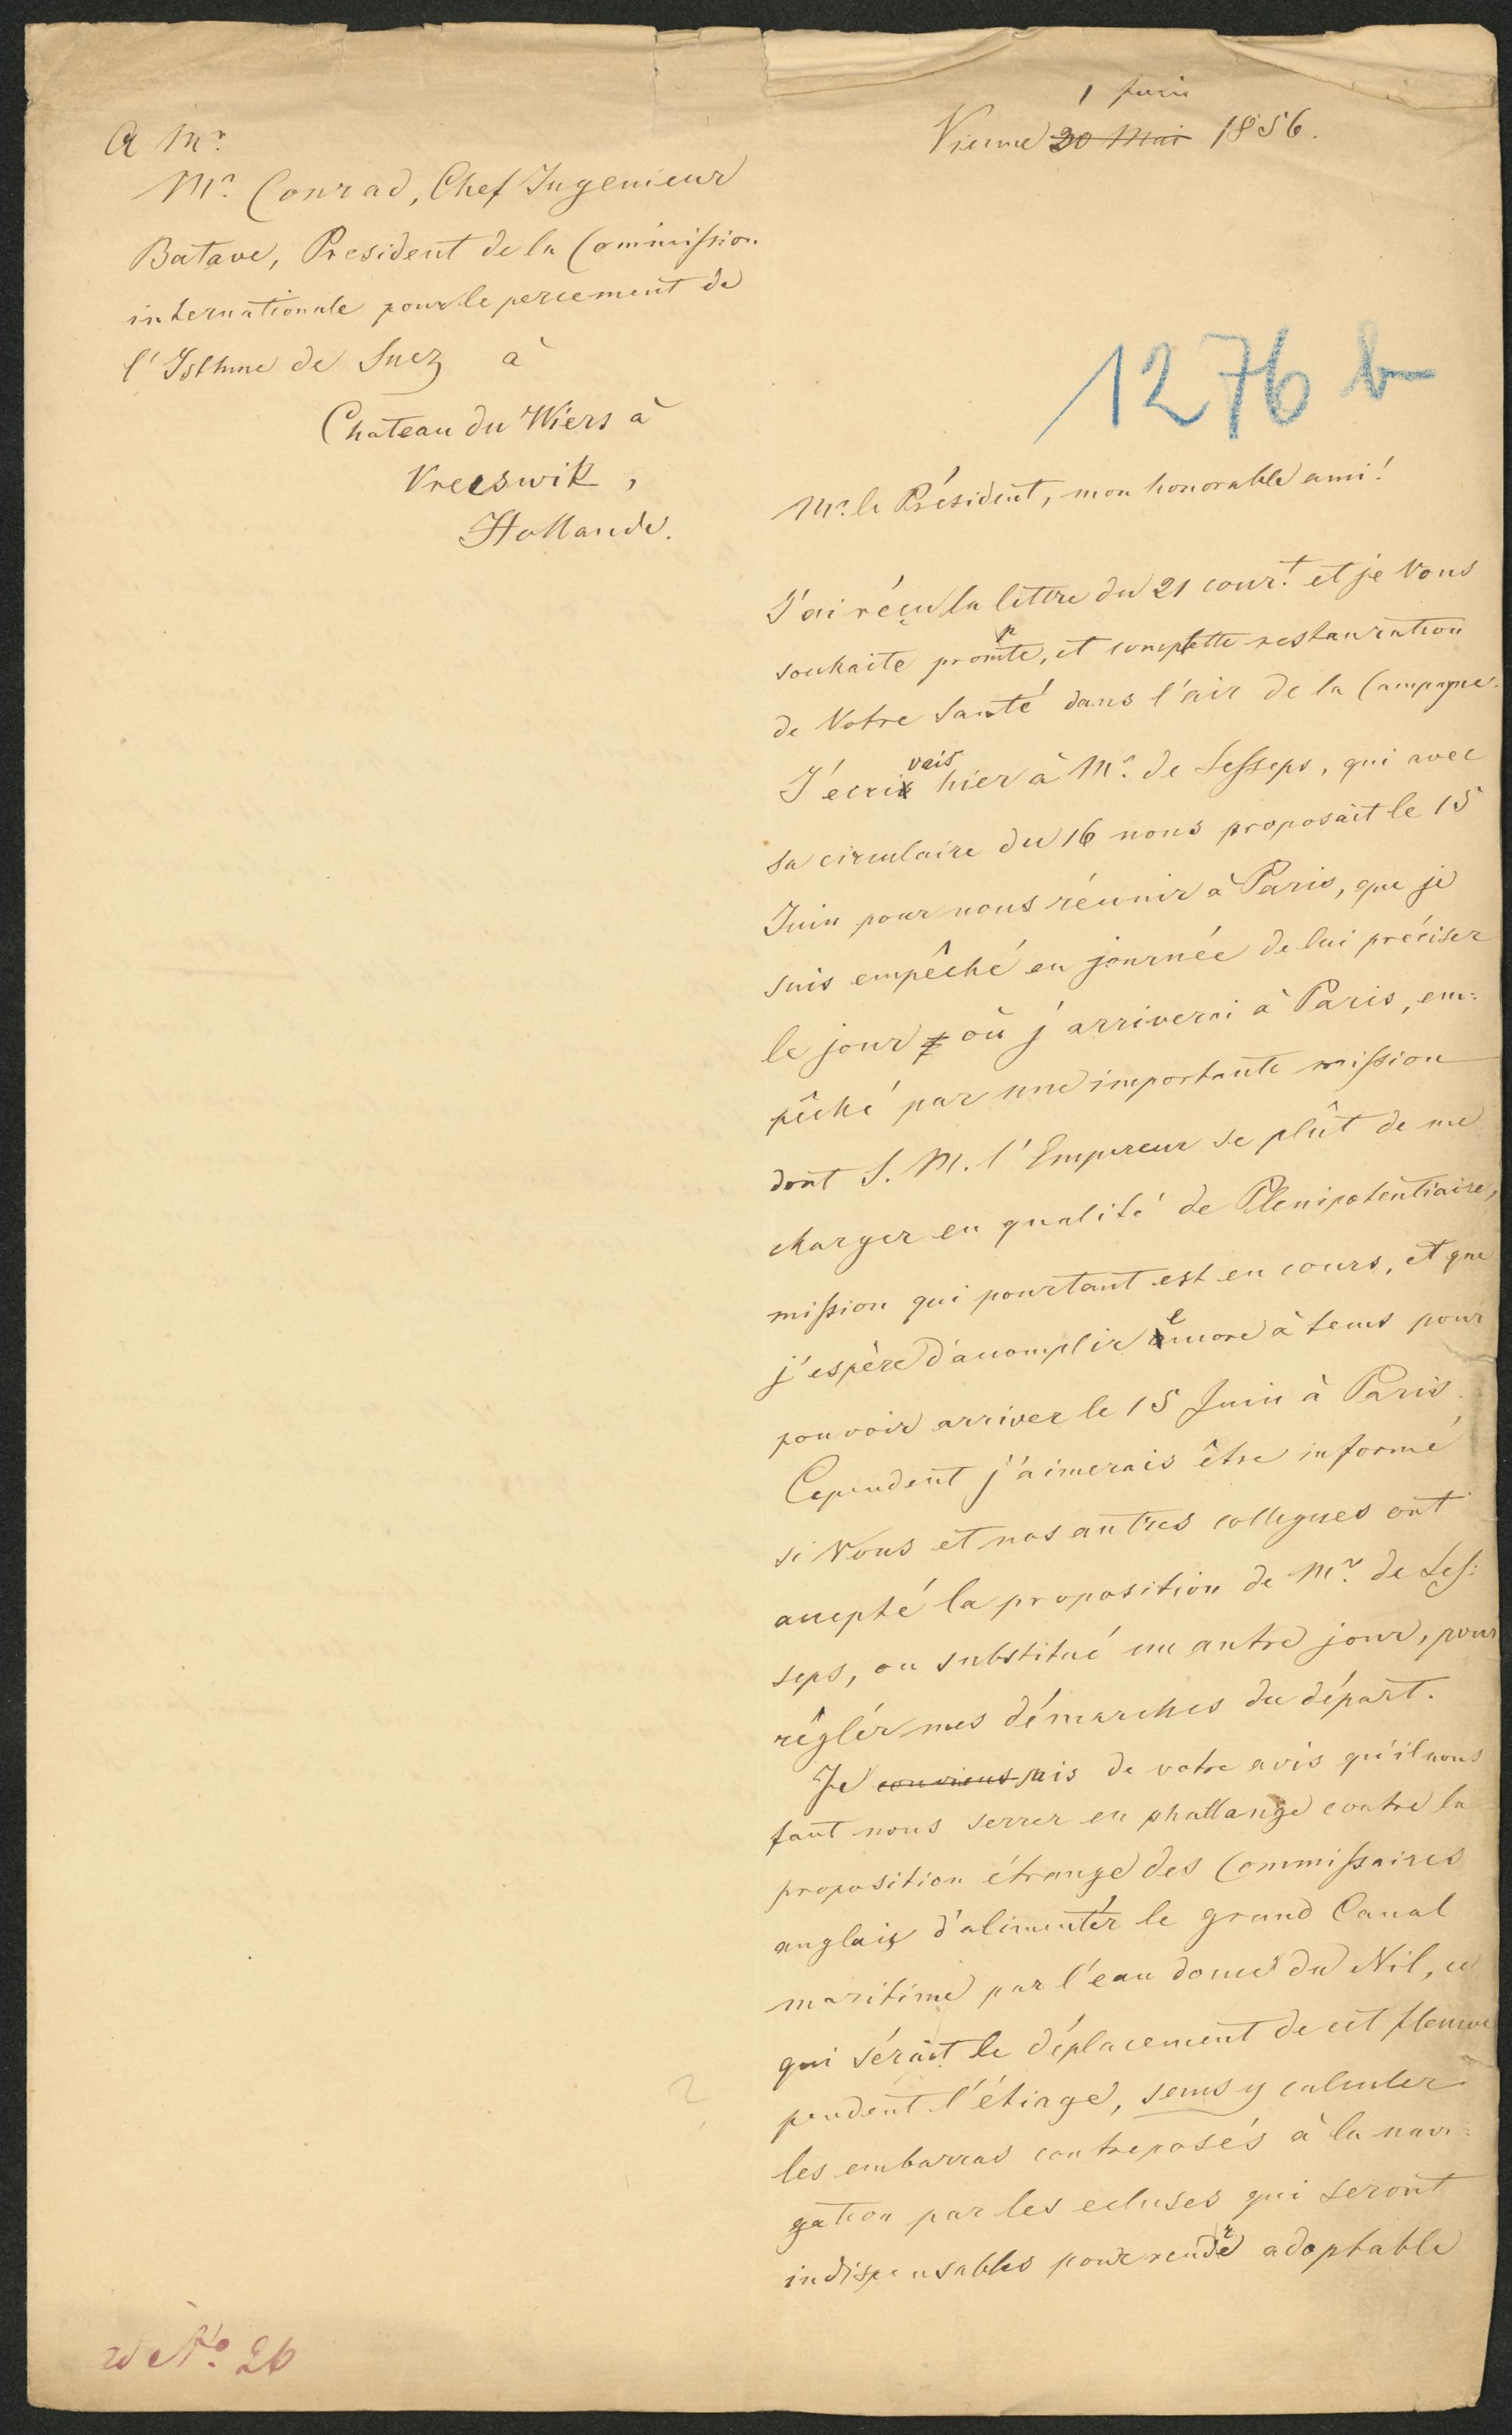 A Mr.
Mr. Conrad, Chef Ingenieur
Batave, President de la Commission
internationale pour le percement de
l'Isthme de Suez à
Chateau du Wiers à
Vreeswik,
Hollande.
1 Juin
Vienne 30 Mai 1856.
1276 b
Mr. le Président, mon honorable ami!
J'ai réçu la lettre du 21 cour.t et je Vous
souhaite prompte, et complette restauration
de Votre Santé dans l'air de la Campagne.
J'ecrivais hier à Mr. de Lesseps, qui avec
sa circulaire du 16 nous proposait le 15
Juin pour nous réunir à Paris, que je
suis empêché en journée de lui préciser
le jour où j'arriverai à Paris, em=
pêché par une importante mission
dont S. M. l'Empereur se plût de me
charger en qualité de Plenipotentiaire,
mission qui pourtant est en cours, et que
j'espère d'acomplir encore à tems pour
pouvoir arriver le 15 Juin à Paris.
Cependent j'aimerais être informé
si Vous et nos autres collegues ont
accepté la proposition de Mr. de Les=
seps, ou substitué un autre jour, pour
règlér mes démarches du départ.
Je conviens suis de votre avis qu'il nous
faut nous serrer en phallange contre la
proposition étrange des Commissaires
anglais d'alimentér le grand Canal
maritime par l'eau douce du Nil, ce
qui sérait le déplacement de cet fleuve
pendent l'étiage, sens y calculer
les embarras contreposés à la navi=
gation par les ecluses qui seront
indispensables pour rendre adoptable
ad No. 26